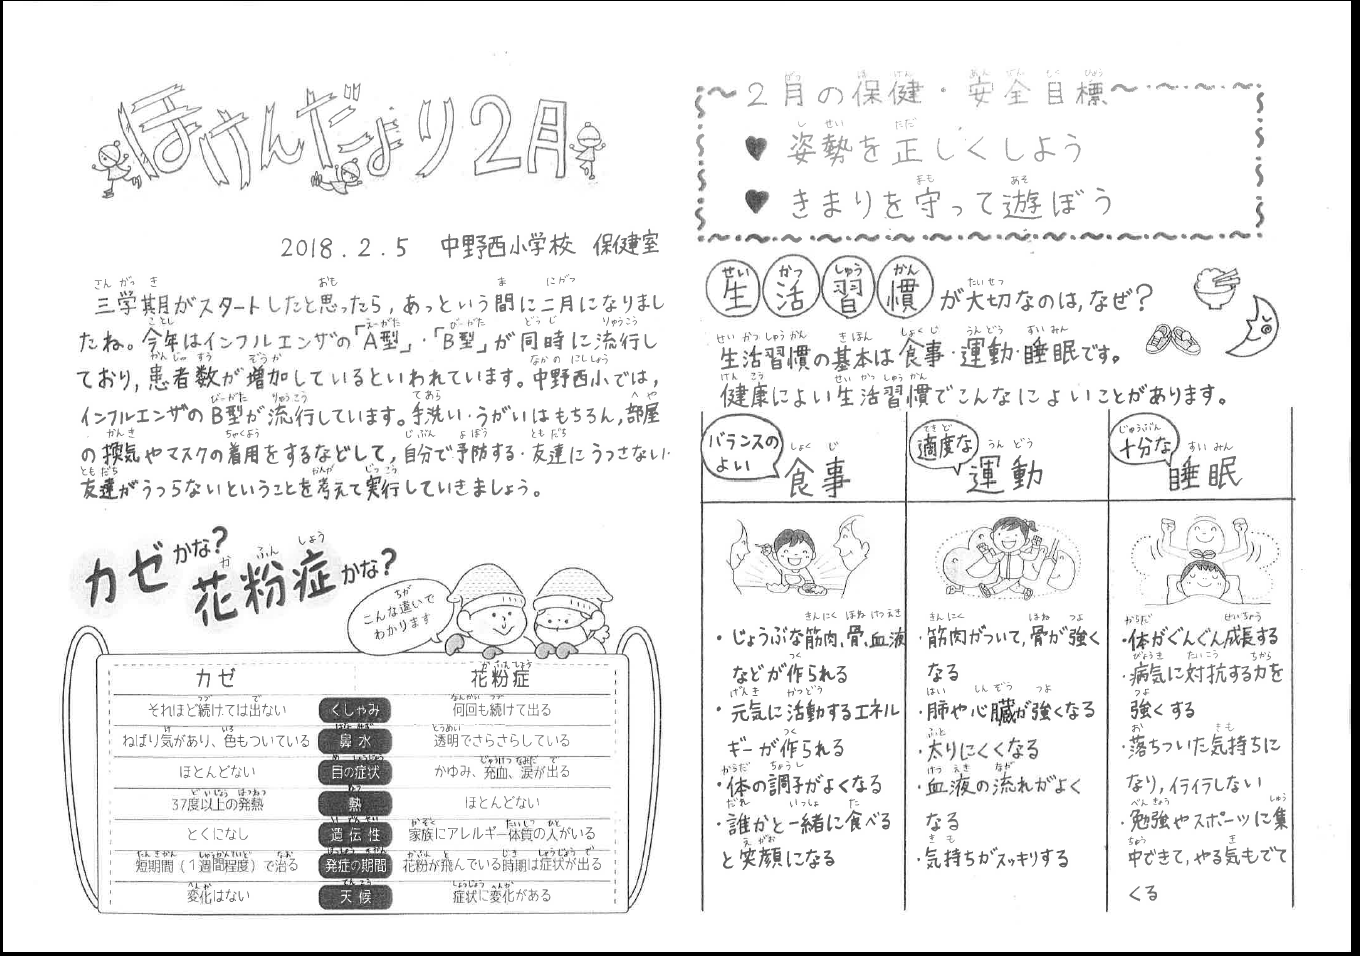 ほけんだより2月
2018.2.5 中野西小学校 保健室
三学期がスタートしたと思ったら,あっという間に二月になりまし
たね。今年はインフルエンザの「A型」・「B型」が同時に流行し
ており,患者数が増加しているといわれています。中野西小では,
インフルエンザのB型が流行しています。手洗い・うがいはもちろん,部屋
の換気やマスクの着用をするなどして,自分で予防する・友達にうつさない・
友達がうつらないということを考えて実行していきましょう。
カゼかな?
花粉症かな?
こんな違いで
わかります
カゼ 花粉症
それほど続けては出ない くしゃみ 何回も続けて出る
ねばり気があり、色もついている 鼻水 透明でさらさらしている
ほとんどない 目の症状 かゆみ、充血、涙が出る
37度以上の発熱 熱 ほとんどない
とくになし 遺伝性 家族にアレルギー体質の人がいる
短期間(1週間程度)で治る 発症の期間 花粉が飛んでいる時期は症状が出る
変化はない 天候 症状に変化がある
2月の保健・安全目標
♥ 姿勢を正しくしよう
♥ きまりを守って遊ぼう
生活習慣が大切なのは,なぜ?
生活習慣の基本は食事・運動・睡眠です。
健康によい生活習慣でこんなによいことがあります。
バランスの
よい
食事
・じょうぶな筋肉,骨,血液
などが作られる
・元気に活動するエネル
ギーが作られる
・体の調子がよくなる
・誰かと一緒に食べる
と笑顔になる
適度な
運動
・筋肉がついて,骨が強く
なる
・肺や心臓が強くなる
・太りにくくなる
・血液の流れがよく
なる
・気持ちがスッキリする
十分な
睡眠
・体がぐんぐん成長する
・病気に対抗する力を
強くする
・落ちついた気持ちに
なり,イライラしない
・勉強やスポーツに集
中できて,やる気もでて
くる